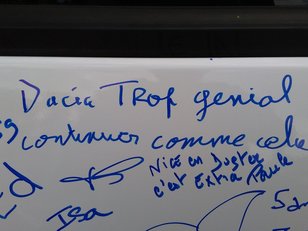 Dacia TROP genial
continuer comme cela
Nice en Duster
c'est Extra Paule
Isa